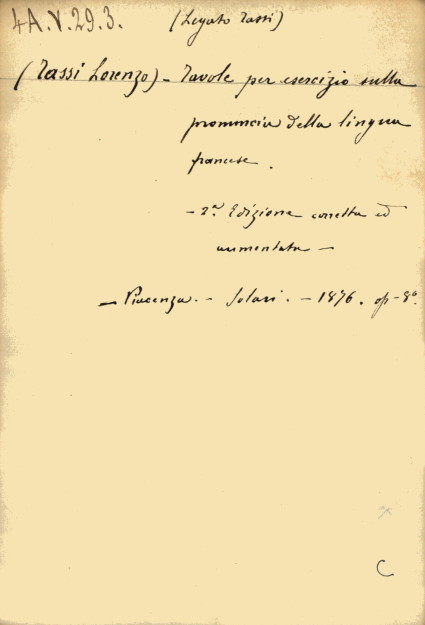 4A.V.29.3. (Legato Tassi)
(Tassi Lorenzo) - Tavole per esercizio sulla
pronuncia della lingua
francese.
- 2ª Edizione corretta ed
aumentata -
- Piacenza. - Solari. - 1876. op - 8°.
C